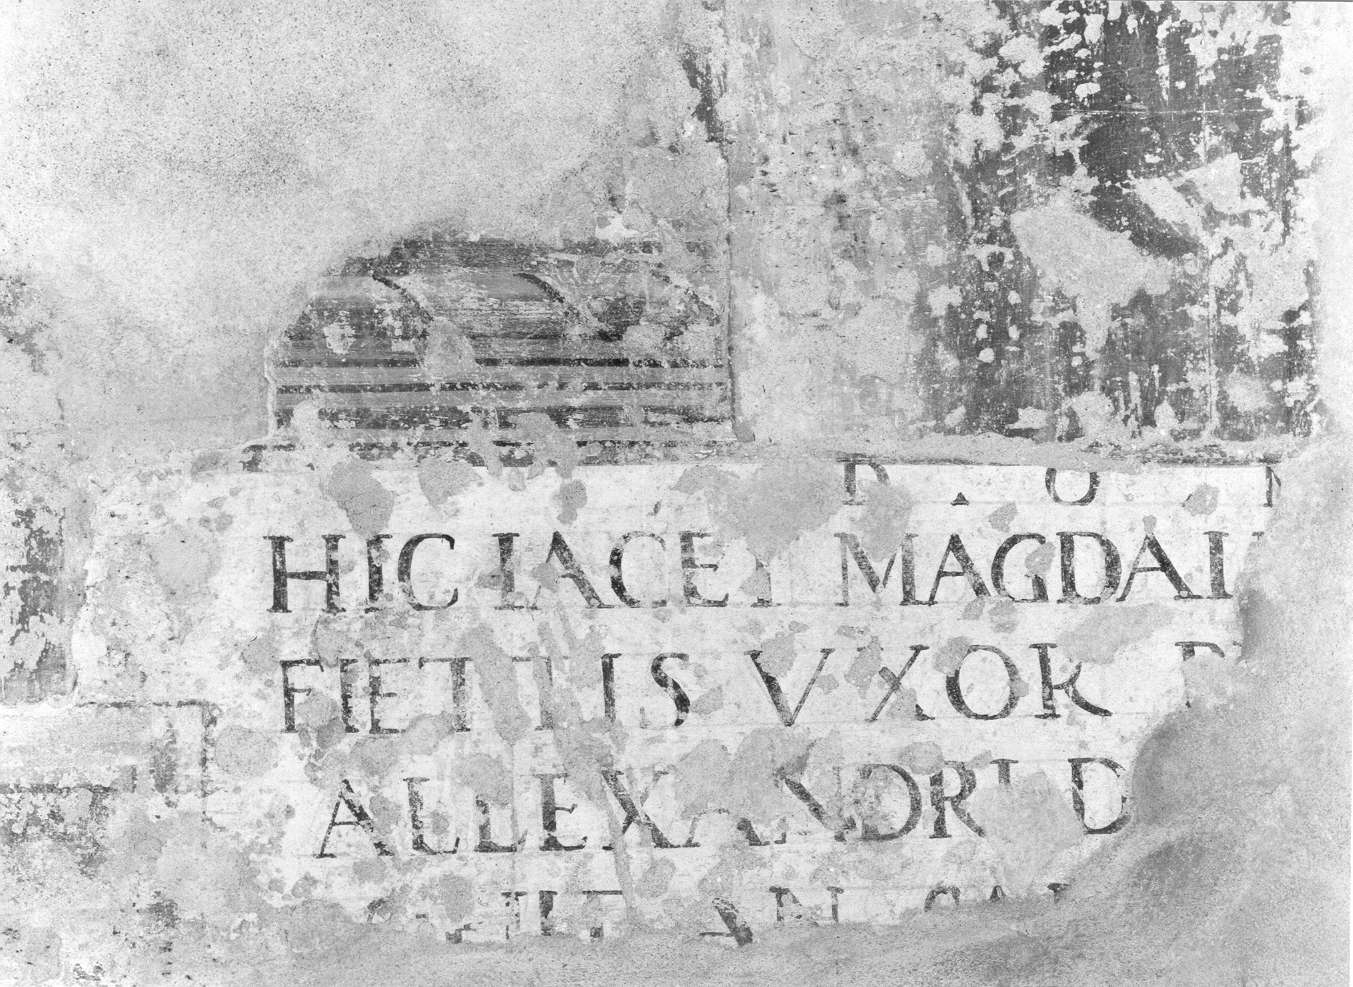 D · O · M
HIC IACET MAGDAL
FIETTIS VXOR
ALLEXANDRI D